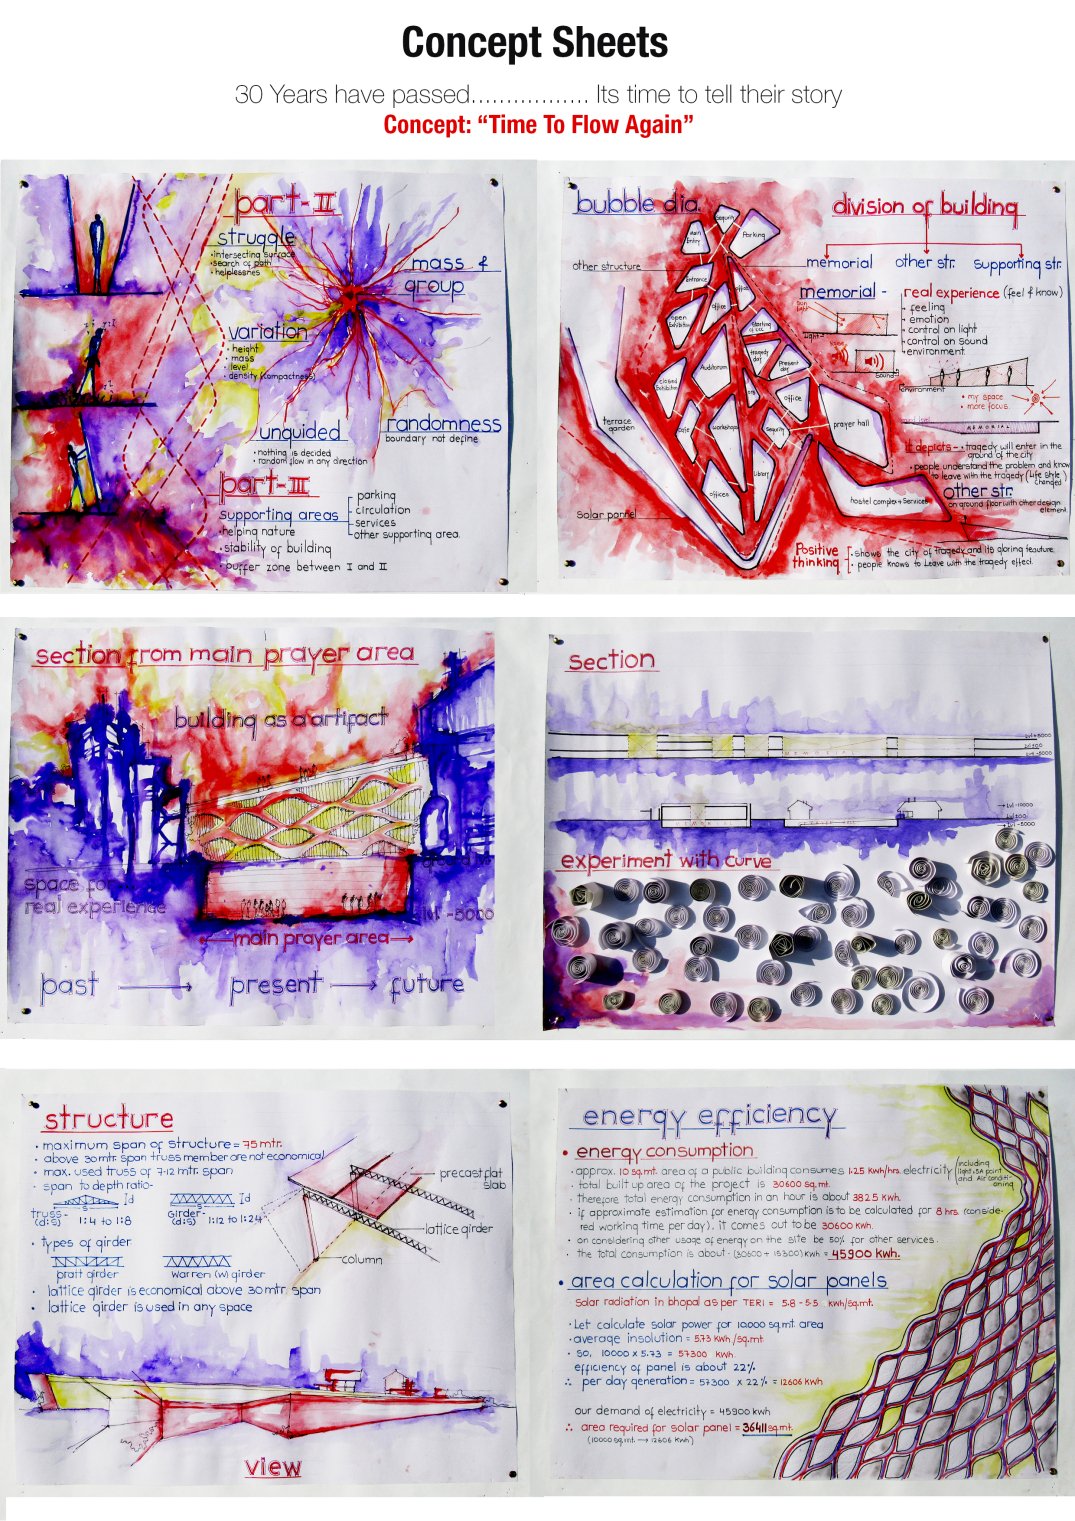 Concept Sheets
30 Years have passed................. Its time to tell their story
Concept: “Time To Flow Again”
part-II
struggle
• intersecting surface
• search of path
• helplessnes
mass &
group
variation
• height
• mass
• level
• density (compactness)
unguided
• nothing is decided
• random flow in any direction
randomness
boundary not define
part-III
supporting areas
parking
circulation
services
other supporting area.
• helping nature
• stability of building
• buffer zone between I and II
bubble dia.
division of building
memorial
other str.
supporting str.
other structure
Main Entry
Security
Parking
Entrance
office
office
open Exhibition
tragedy day
Present day
Auditorium
closed Exhibition
office
cafe
Workshops
Security
prayer hall
Library
offices
terrace garden
Solar pannel
hostel complex + Services
memorial -
real experience (feel & know)
• feeling
• emotion
• control on light
• control on sound
• environment.
Light
Sound
Environment
• my space
• more focus.
MEMORIAL
It depicts - • tragedy will enter in the
ground of the city
• people understand the problem and know
to leave with the tragedy (Life style)
changed
other str.
on ground floor with other design
element.
Positive
thinking
• shows the city of tragedy and its gloring feauture.
• people knows to Leave with the tragedy effect.
section from main prayer area
building as a artifact
space for
real experience
lvl -5000
main prayer area
past
present
future
section
MEMORIAL
MEMORIAL
experiment with curve
structure
• maximum span of structure = 75 mtr.
• above 30 mtr. span truss member are not economical
• max. used truss of 7-12 mtr. span
• span to depth ratio-
truss-
(d:s)
1:4 to 1:8
Girder-
(d:s)
1:12 to 1:24
• types of girder
pratt girder
Warren (w) girder
• lattice girder is economical above 30 mtr. span
• lattice girder is used in any space
precast flat
slab
lattice girder
column
view
energy efficiency
• energy consumption
• approx. 10 sq.mt. area of a public building consumes 1.25 kWh/hrs. electricity (including
light, 5A point
and Air conditi-
oning
• total built up area of the project is 30600 sq.mt.
• therefore total energy consumption in an hour is about 3825 kWh.
• if approximate estimation for energy consumption is to be calculated for 8 hrs. (conside-
red working time per day), it comes out to be 30600 kWh.
• on considering other usage of energy on the site be 50% for other services.
• the total consumption is about (30600 + 15300) kWh = 45900 kWh.
• area calculation for solar panels
Solar radiation in bhopal as per TERI = 5.8 - 5.5 kWh/sq.mt.
• Let calculate solar power for 10,000 sq.mt. area
• average insolution = 5.73 kWh/sq.mt.
• So, 10000 x 5.73 = 57300 kWh.
efficiency of panel is about 22%
∴ per day generation = 57300 x 22% = 12606 kWh
our demand of electricity = 45900 kWh
∴ area required for solar panel = 36411 sq.mt.
(10000 sq.mt. → 12606 kWh)